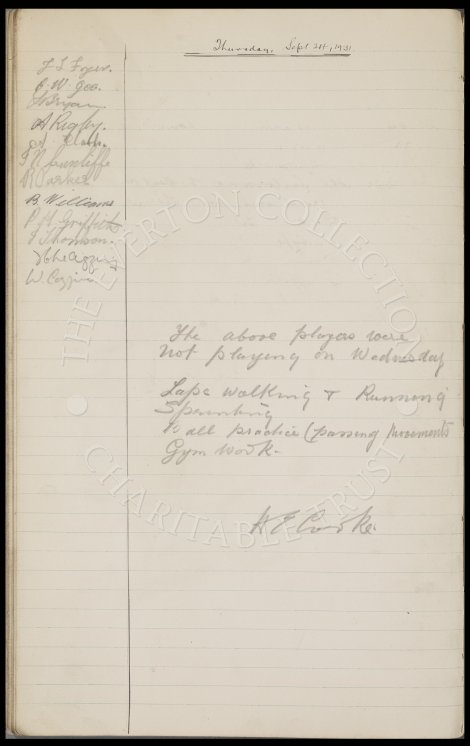 Thursday. Sept 24, 1931.
E. W. Gee.
A Rigby.
J N Cunliffe
R Parker
B. Williams
P. H. Griffiths
J Thomson.
W. Coggins
The above players were
not playing on Wednesday
Laps Walking & Running
Sprinting
Ball practice (passing movements
Gym work.
H E Cooke.
THE EVERTON COLLECTION
CHARITABLE TRUST